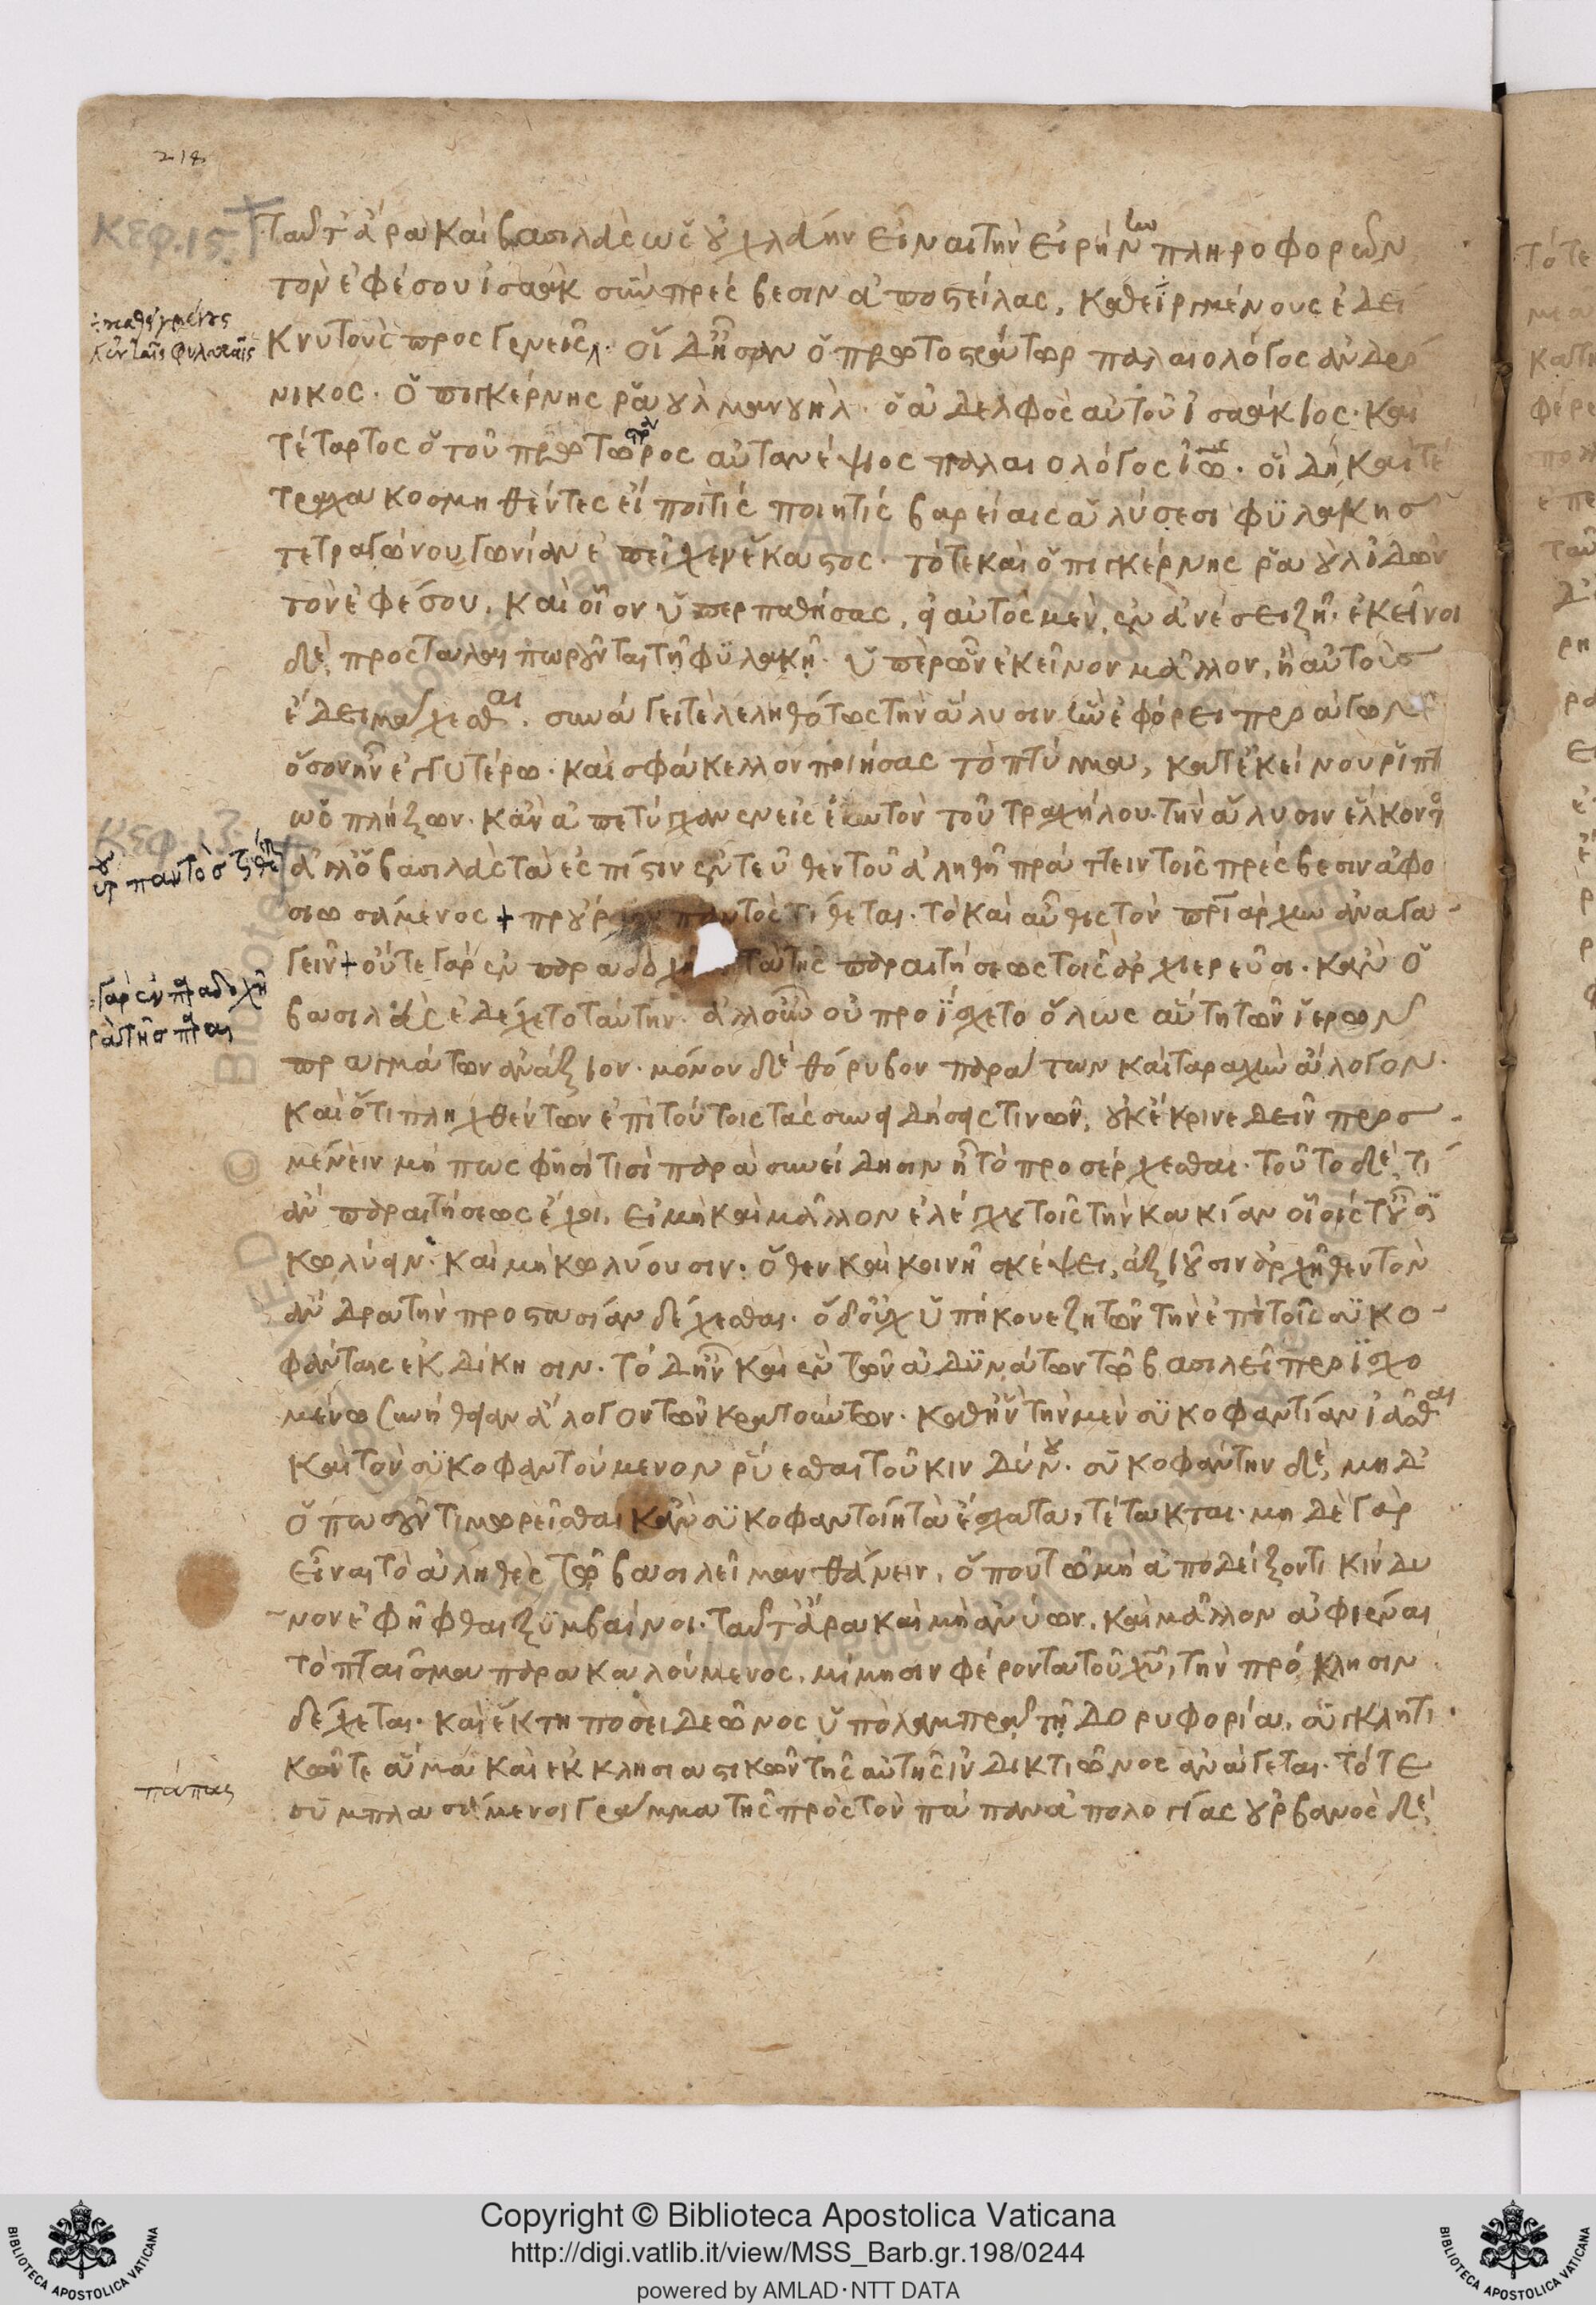 218
κεφ. 15.
Ταῦτ' ἄρα καὶ βασιλεὺς ὡς οὐ χλεύην εἶναι τὴν εἰρήνην πληροφορῶν
τὸν ἐφέσου ἰσαὰκ σὺν πρέσβεσιν ἀποστείλας, καθειργμένους ἐδεί
κνυ τοὺς προσγενεῖς· οἳ δὴ ἦσαν ὁ πρωτοστράτωρ παλαιολόγος ἀνδρό
νικος· ὁ πιγκέρνης ραοὺλ μανουὴλ· ὁ ἀδελφὸς αὐτοῦ ἰσαάκιος· καὶ
τέταρτος ὁ τοῦ πρωτοστράτορος αὐτανέψιος παλαιολόγος ἰω· οἳ δὴ καὶ τέ
τραχα κοσμηθέντες εἴποι τίς ποιητὶς βαρείαις ἁλύσεσι φυλακῆς
τετραγώνου γωνίαν ἐπεῖχεν ἕκαστος· τότε καὶ ὁ πιγκέρνης ραοὺλ ἰδὼν
τὸν ἐφέσου, καὶ οἷον ὑπερπαθήσας, εἰ αὐτὸς μὲν, ἐν ἀνέσει ζῇ, ἐκεῖνοι
δὲ, προσταλαιπωροῦνται τῇ φυλακῇ· ὑπὲρ ὧν ἐκεῖνον μᾶλλον, ἢ αὐτοὺς
ἔδει μάχεσθαι· συνάγει τε λεληθότως τὴν ἅλυσιν ἣν ἐφόρει πρὸ αὐτῶν
ὅσον ἦν ἐγγυτέρω· καὶ σφάκελλον ποιήσας τὸ πτύγμα, κατ' ἐκείνου ῥίπτει
ὡς πλήξων· κἂν ἀπετύγχανεν εἰς ἑαυτὸν τοῦ τραχήλου τὴν ἅλυσιν ἕλκοντος
κεφ. 13.
ἀλλ' ὁ βασιλεὺς τὰ ἐς πίστιν ἐντεῦθεν τοῦ ἀληθῆ πράττειν τοῖς πρέσβεσιν ἀφο
σιωσάμενος + προὔργου παντὸς τίθεται· τὸ καὶ αὖθις τὸν πριάρχην ἀναγα
γεῖν + οὔτε γὰρ ἐν παραδοχῇ τὰ τῆς παραιτήσεως τοῖς ἀρχιερεῦσι· κἂν ὁ
βασιλεὺς ἐδέχετο ταύτην· ἀλλ' οὖν οὐ προΐσχετο ὅλως αὕτη τῶν ἱερῶν
πραγμάτων ἀνάξιον· μόνον δὲ θόρυβον παράττων καὶ ταραχὴν ἄλογον·
καὶ ὅτι πληχθέντων ἐπὶ τούτοις τὰς συνειδήσεις τινῶν, οὐκ ἔκρινε δεῖν προσ
μένειν μή πως φησί τισὶ παρὰ συνείδησιν ἢ τὸ προσέρχεσθαι· τοῦτο δὲ, τί
ἂν παραιτήσεως ἔχοι, εἰ μὴ καὶ μᾶλλον ἐλέγχου τοῖς τὴν κακίαν οἷοίς τ' οὖσι
κωλύειν· καὶ μὴ κωλύουσιν· ὅθεν καὶ κοινῇ σκέψει, ἀξιοῦσιν ἀρχῆθεν τὸν
ἄνδρα τὴν προστασίαν δέχεσθαι· ὁ δ' οὐχ ὑπήκουε ζητῶν τὴν ἐπὶ τοῖς συκο
φάνταις ἐκδίκησιν· τὸ δ' ἦν καὶ ἓν τῶν ἀδυνάτων τῷ βασιλεῖ περιϊσχο
μένῳ συνήθειαν ἄλογον τῶν κρατούντων· καθ' ἣν τὴν μὲν συκοφαντίαν ἰᾶσθαι
καὶ τὸν συκοφαντούμενον ῥύεσθαι τοῦ κινδύνου· συκοφάντην δὲ, μηδ'
ὁπωσοῦν τιμωρεῖσθαι κἂν συκοφαντοίη τὰ ἔσχατα, τέτακται· μηδὲ γὰρ
εἶναι τὸ ἀληθὲς τῷ βασιλεῖ μανθάνειν, ὅπου τῷ μὴ ἀποδείξοντι κίνδυ
νον ἐφῆφθαι ξυμβαίνοι· ταῦτ' ἄρα καὶ μὴ ἀνύων, καὶ μᾶλλον ἀφιέναι
τὸ πταῖσμα παρακαλούμενος, μίμησιν φέροντα τοῦ χυ, τὴν πρόκλησιν
δέχεται· καὶ ἕκτῃ ποσειδεῶνος ὑπὸ λαμπρᾷ τῇ δορυφορίᾳ, συγκλητι
κῶν τε ἅμα καὶ ἐκκλησιαστικῶν τῆς αὐτῆς ἰνδικτιῶνος ἀνάγεται· τότε
συμπλασάμενοι γράμμα τῆς πρὸς τὸν πάπαν ἀπολογίας οὐρβανὸς δὲ
καθειργμένους
ἐν ταῖς φυλακαῖς
παντὸς τίθε
γὰρ ἐν παραδοχῇ
τὰ τῆς παραι
πάπας
Copyright © Biblioteca Apostolica Vaticana
http://digi.vatlib.it/view/MSS_Barb.gr.198/0244
powered by AMLAD·NTT DATA
BIBLIOTECA APOSTOLICA VATICANA
BIBLIOTECA APOSTOLICA VATICANA